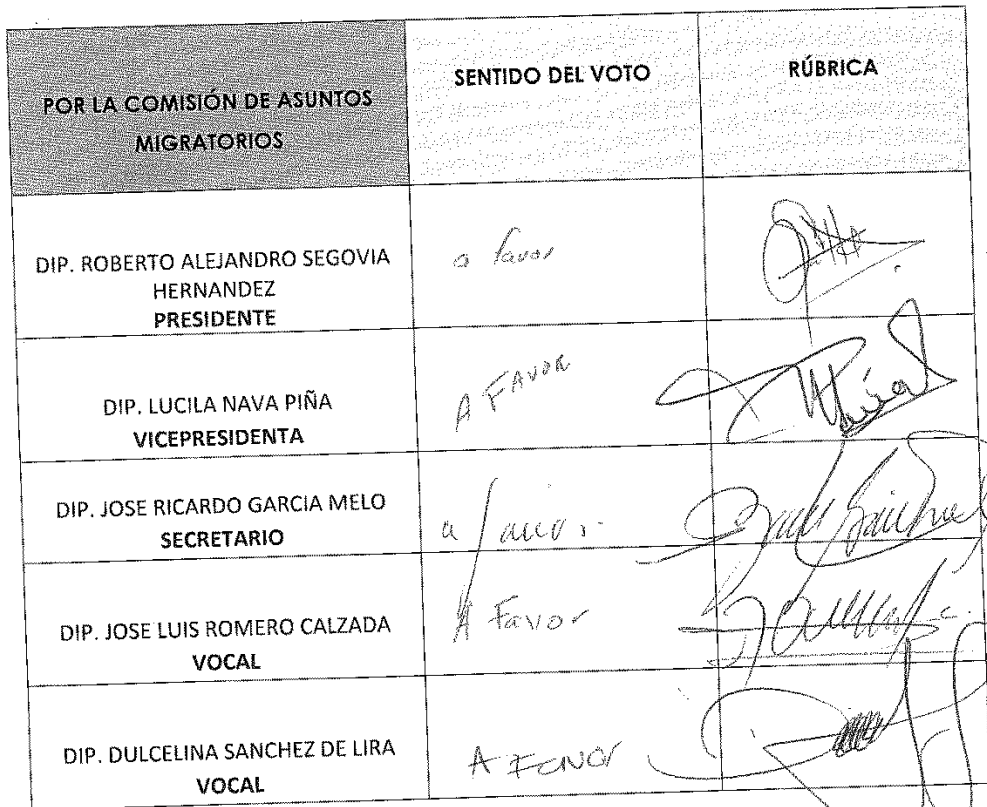 POR LA COMISIÓN DE ASUNTOS
MIGRATORIOS
SENTIDO DEL VOTO
RÚBRICA
DIP. ROBERTO ALEJANDRO SEGOVIA
HERNANDEZ
PRESIDENTE
a favor
DIP. LUCILA NAVA PIÑA
VICEPRESIDENTA
A FAVOR
DIP. JOSE RICARDO GARCIA MELO
SECRETARIO
a favor.
DIP. JOSE LUIS ROMERO CALZADA
VOCAL
A Favor
DIP. DULCELINA SANCHEZ DE LIRA
VOCAL
A FAVOR